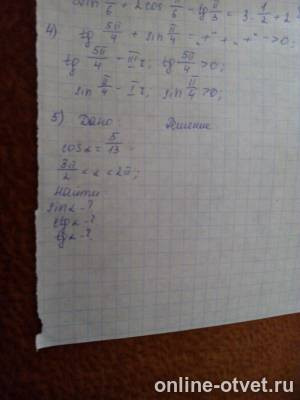 sin π/6 + 2cos π/6 - tg π/3 = 3 · 1/2 + 2 ·
4) tg 5π/4 + sin π/4 = „+" + „+" ->0;
tg 5π/4 - III г; tg 5π/4 >0;
sin π/4 - I г; sin π/4 >0;
5) Дано: Решение
cosα = 5/13
3π/2 < α < 2π;
Найти
sinα - ?
ctgα - ?
tgα - ?
online-otvet.ru